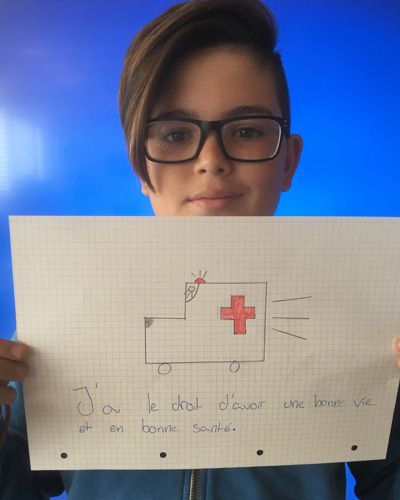 J'ai le droit d'avoir une bonne vie
et en bonne santé.